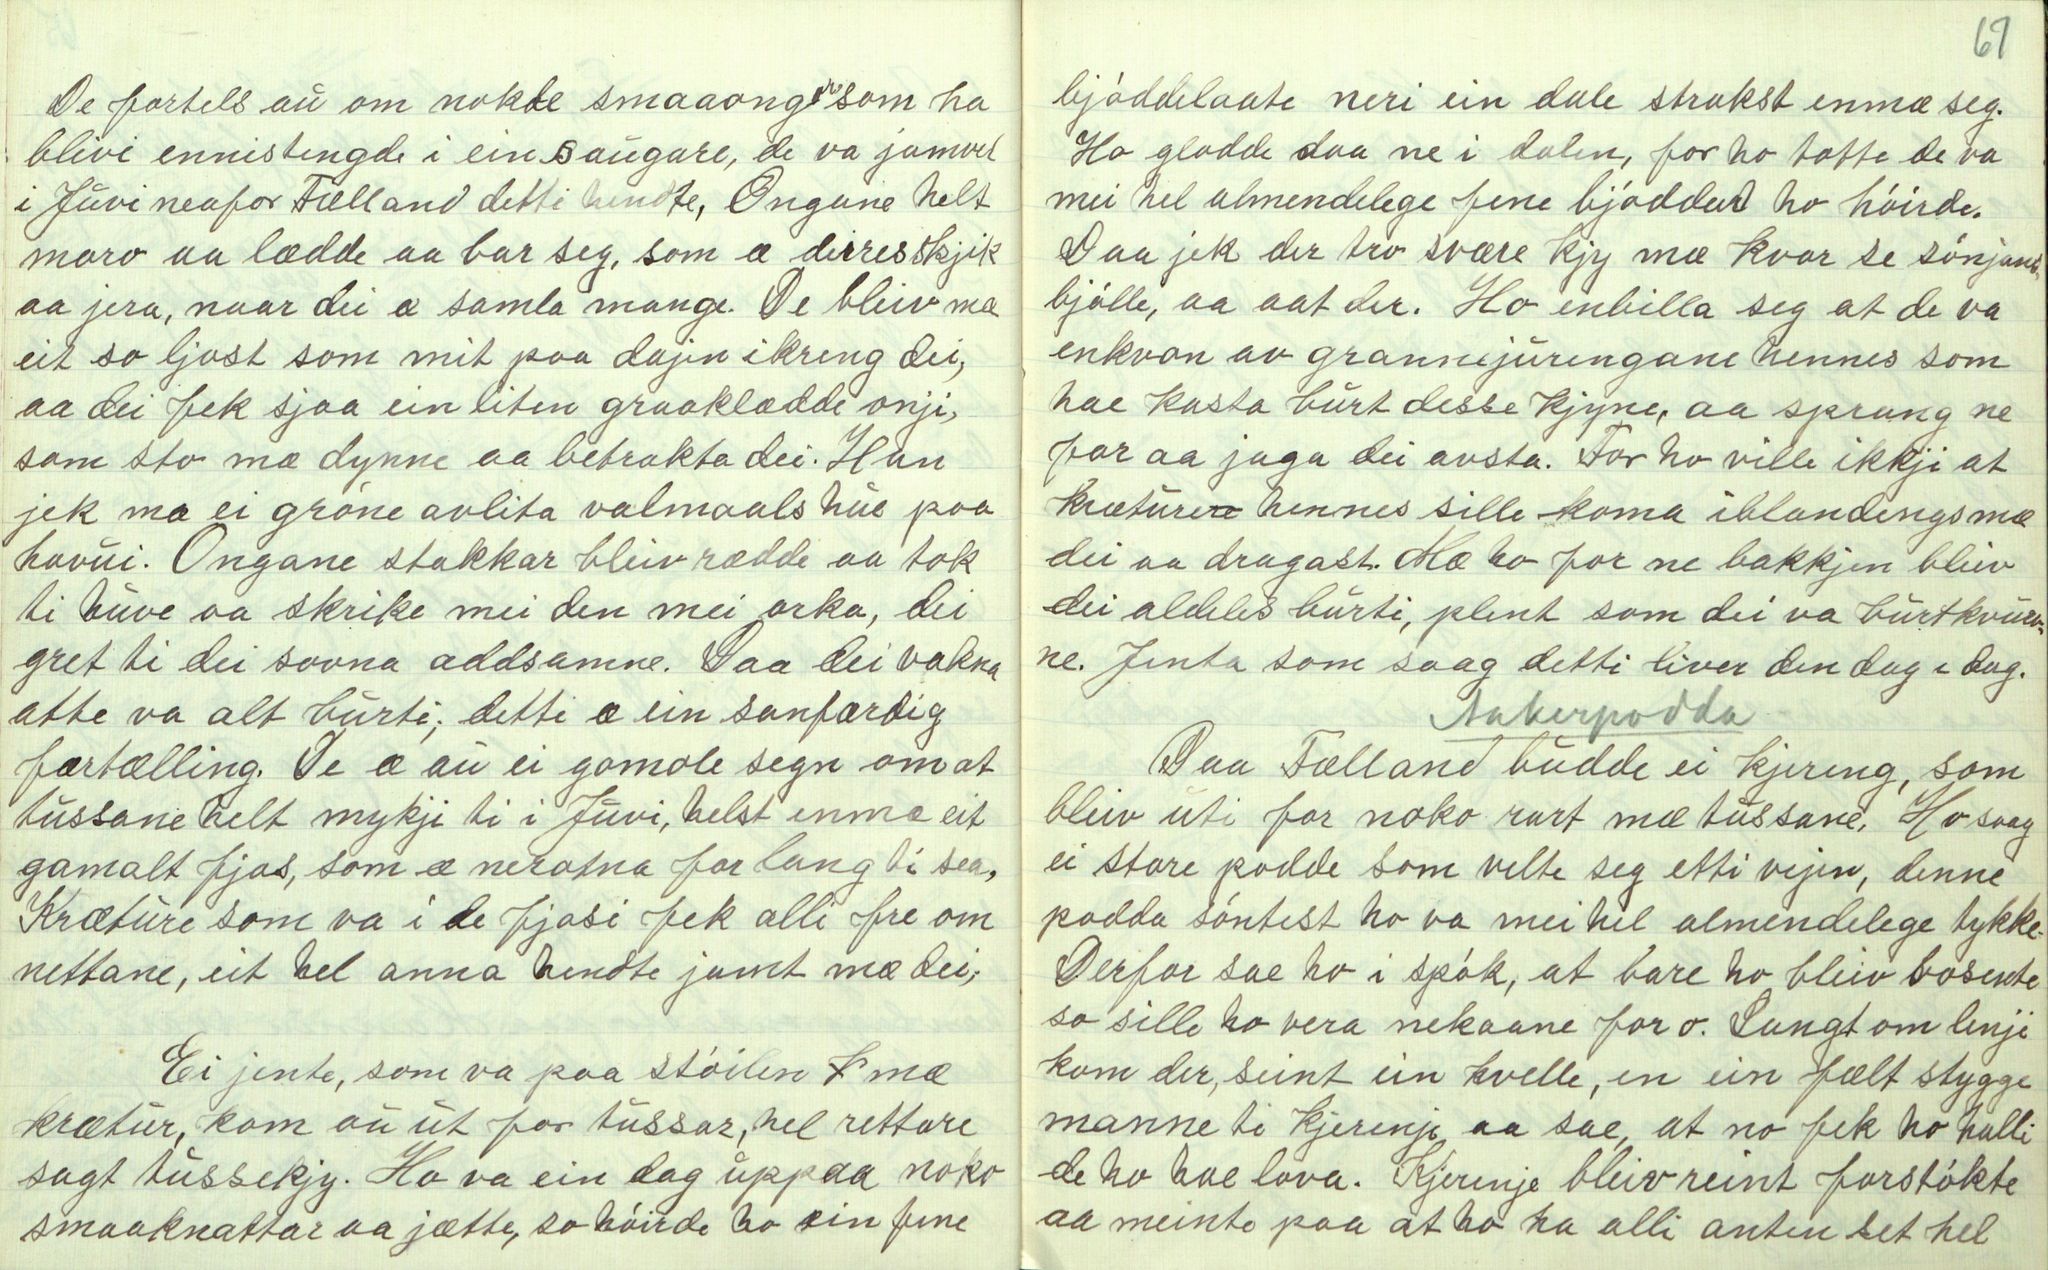 De fortels aŭ om nokde smaaongar som ha
blivi ennistengde i ein Saŭgare, de va jamvel
i Jŭvi neafor Fælland detti hendte, Ongane helt
moro aa lædde aa bar seg, som æ deires skjik
aa jera, naar dei æ samla mange. De bleiv mæ
eit so ljost som mit paa dajen ikreng dei,
aa dei fek sjaa ein liten graaklædde onji,
som sto mæ dynne aa betrakta dei. Han
jek mæ ei gróne avlita valmaals hŭe paa
havŭi. Ongane stakkar bleiv rædde aa tok
ti hŭve aa skrike mei den mei orka, dei
gret ti dei sovna addsamne. Daa dei vakna
atte va alt bŭrti; detti æ ein sanfærdig
færtælling. De æ aŭ ei gomole segn om at
tŭssane helt mykji ti i Jŭvi, helst enmæ eit
gamalt fjos, som æ nerotna for lang ti sea.
Krætŭre som va i de fjosi fek alli fre om
nettane, eit hel anna hendte jamt mæ dei;
Ei jente, som va paa stóilen mæ
krætŭr, kom aŭ ŭt for tŭssar, hel rettare
sagt tŭssekjy. Ho va ein dag ŭppaa noko
smaaknattar aa jætte, so hóirde ho ein fene
69
bjóddelaate neri ein dale strakst enmæ seg.
Ho glodde daa ne i dalen, for ho totte de va
mei hel almendelege fene bjóddar ho hóirde.
Daa jek der tro svære kjy mæ kvar se sónjand-
bjólle, aa aat der. Ho enbilla seg at de va
enkvan av grannijŭrengane hennes som
hae kasta bŭrt desse kjyne, aa sprang ne
for aa jaga dei avsta. For ho ville ikkji at
krætŭre hennes sille koma iblandengs mæ
dei aa dragast. Mæ ho for ne bakkjen bleiv
dei aldeles bŭrti, plent som dei va bŭrtkvŭrv-
ne. Jenta som saag detti liver den dag i dag.
Aakerpodda
Daa Fælland bŭdde ei kjereng, som
bleiv ŭti for noko rart mæ tŭssane. Ho saag
ei store podde som velte seg etti vejen, denne
podda sóntest ho va mei hel almendelege tykke.
Derfor sae ho i spók, at bare ho bleiv bosente
so sille ho vera nekaane for o. Langt om lenji
kom der, seint ein kvelle, en ein fælt stygge
manne ti kjerenji aa sae, at no fek ho halli
de ho hae lova. Kjerenje bleiv reint forstókte
aa meinte paa at ho ha alli anten set hel